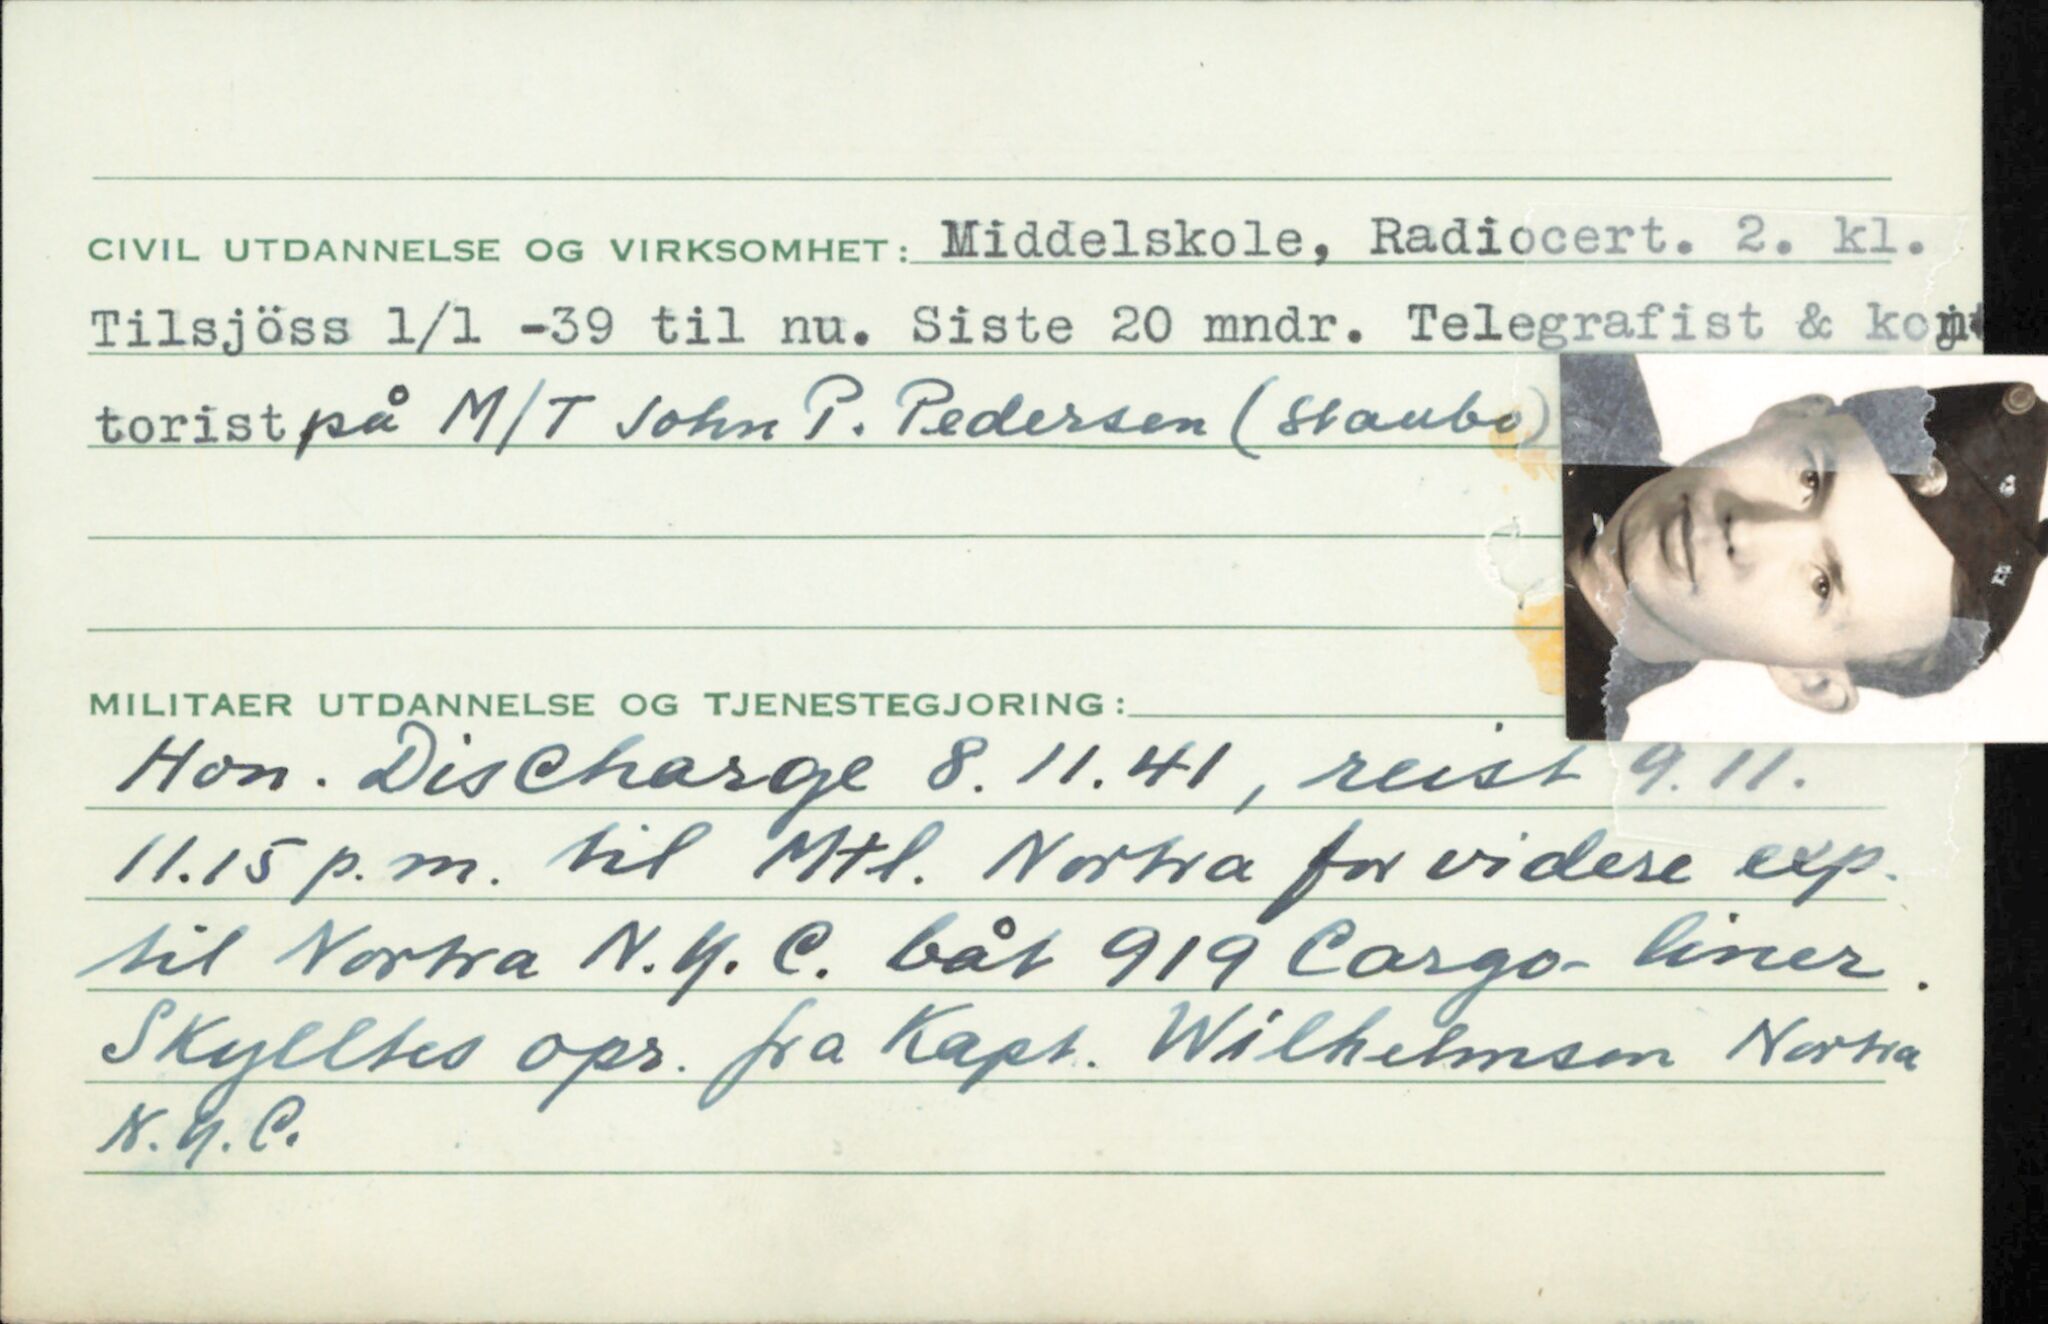 CIVIL UTDANNELSE OG VIRKSOMHET: Middelskole, Radiocert. 2. kl.
Tilsjöss 1/1 -39 til nu. Siste 20 mndr. Telegrafist & kon
torist på M/T John P. Pedersen (Staubo)
MILITAER UTDANNELSE OG TJENESTEGJORING:
Hon. Discharge 8.11.41, reist 9.11.
11.15 p.m. til Mtl. Nortra for videre exp.
til Nortra N.Y.C. båt 919 Cargo-liner.
Skylltes opr. fra Kapt. Wilhelmsen Nortra
N.Y.C.